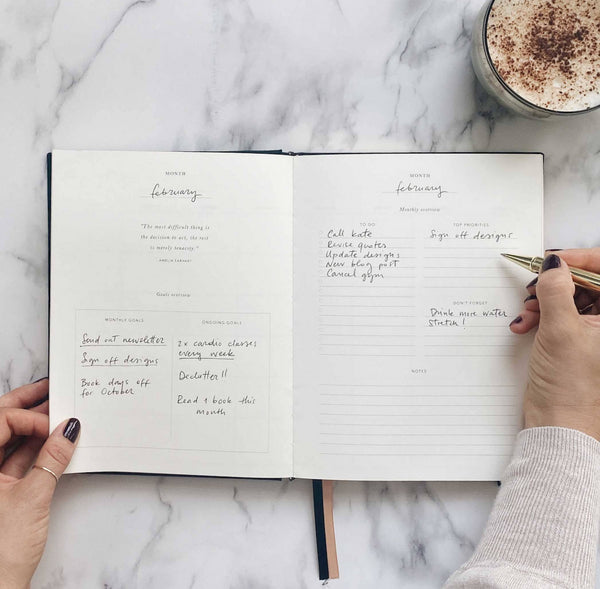 MONTH
february
"The most difficult thing is
the decision to act, the rest
is merely tenacity."
- AMELIA EARHART
Goals overview
MONTHLY GOALS
Send out newsletter
Sign off designs
Book days off
for October
ONGOING GOALS
2x cardio classes
every week
Declutter!!
Read 1 book this
month
MONTH
february
Monthly overview
TO DO
Call kate
Revise quotes
Update designs
New blog post
Cancel gym
TOP PRIORITIES
Sign off designs
DON'T FORGET
Drink more water
Stretch!
NOTES